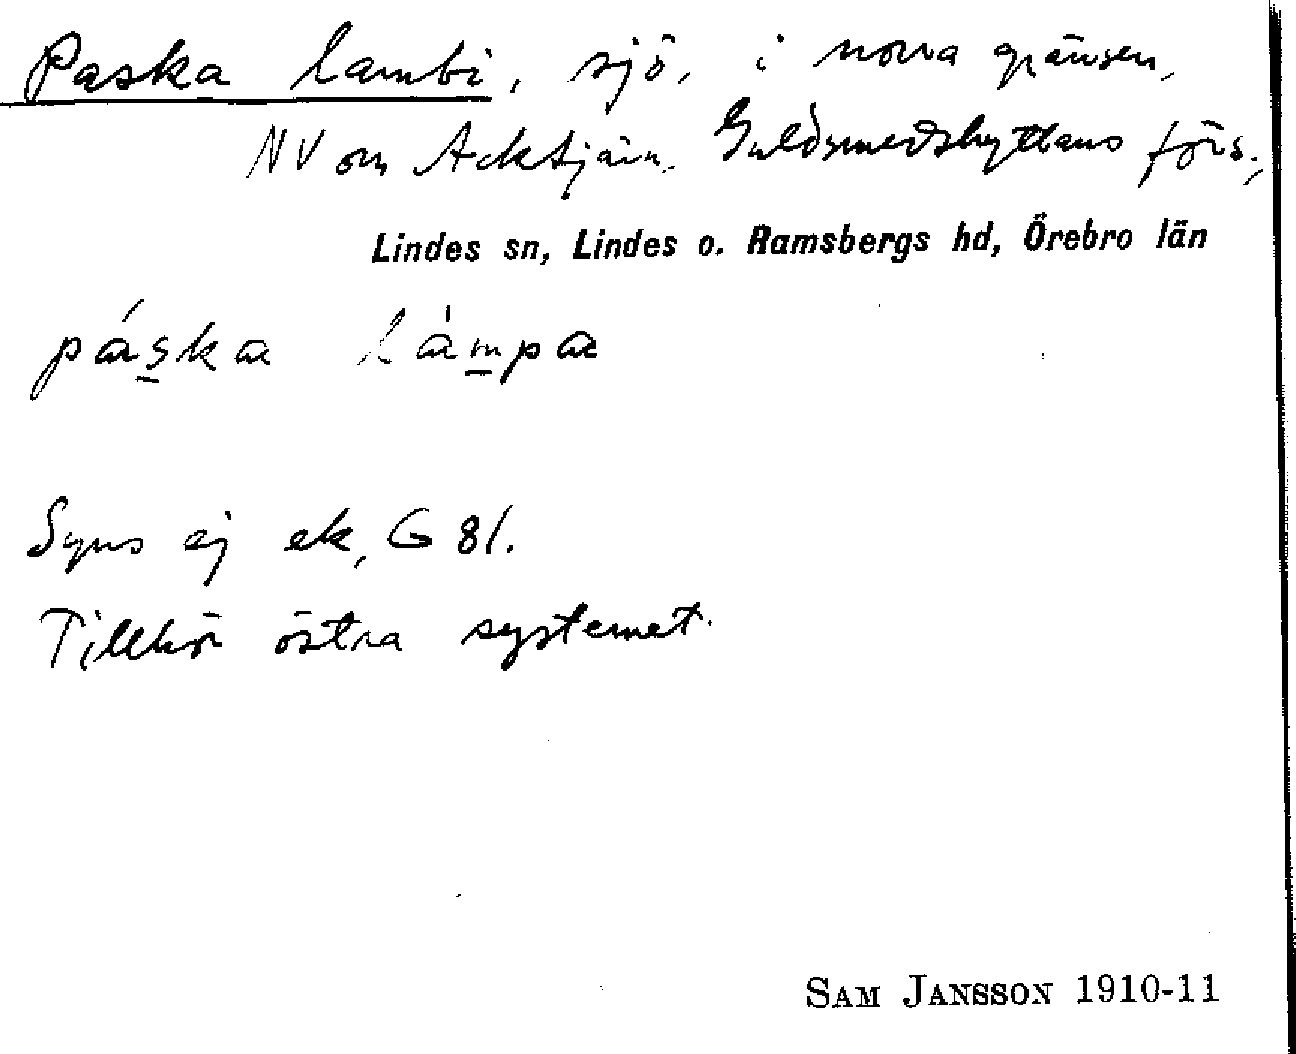 Paska lambi, sjö, i norra gränsen,
NV om Acktjärn. Guldsmedshyttans förs.,
Lindes sn, Lindes o. Ramsbergs hd, Örebro län
páska lámpa
Syns ej ek, G 81.
Tillhör östra systemet.
SAM JANSSON 1910-11